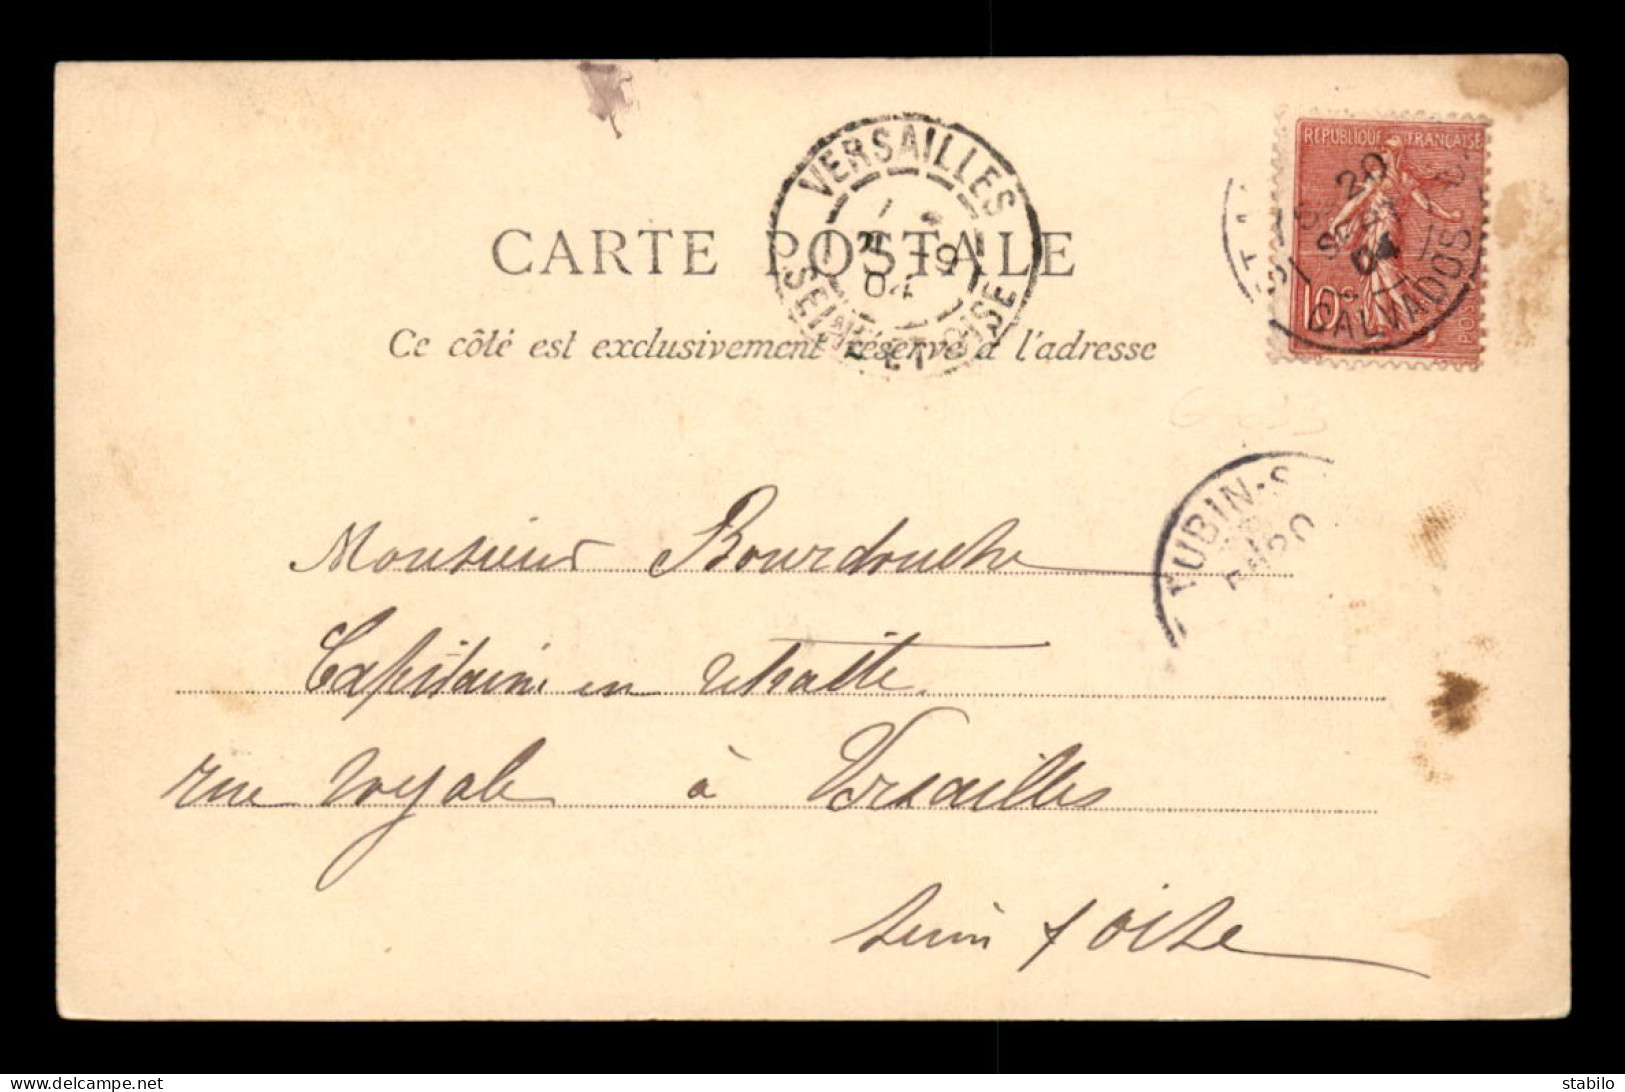 RÉPUBLIQUE FRANÇAISE
10c
VERSAILLES
-9
04
SEINE ET OISE
20
SEPT
04
CALVADOS
CARTE POSTALE
Ce côté est exclusivement réservé à l'adresse
UBIN-S
20
Monsieur Bourdouche
Capitaine en retraite
rue royale à Versailles
Seine & Oise
stabilo